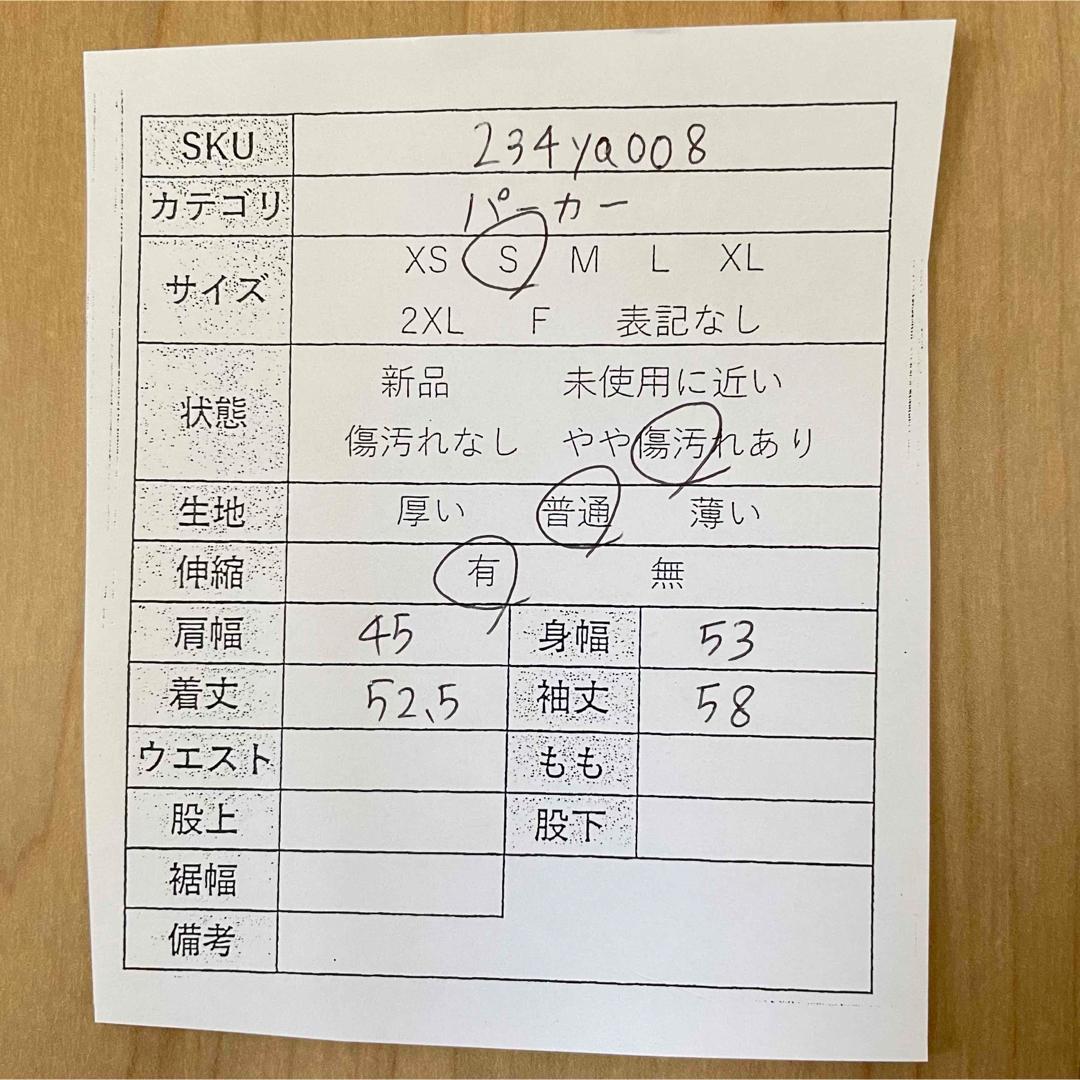 SKU 234ya008
カテゴリ パーカー
サイズ XS S M L XL
2XL F 表記なし
状態 新品 未使用に近い
傷汚れなし やや傷汚れあり
生地 厚い 普通 薄い
伸縮 有 無
肩幅 45 身幅 53
着丈 52.5 袖丈 58
ウエスト もも
股上 股下
裾幅
備考